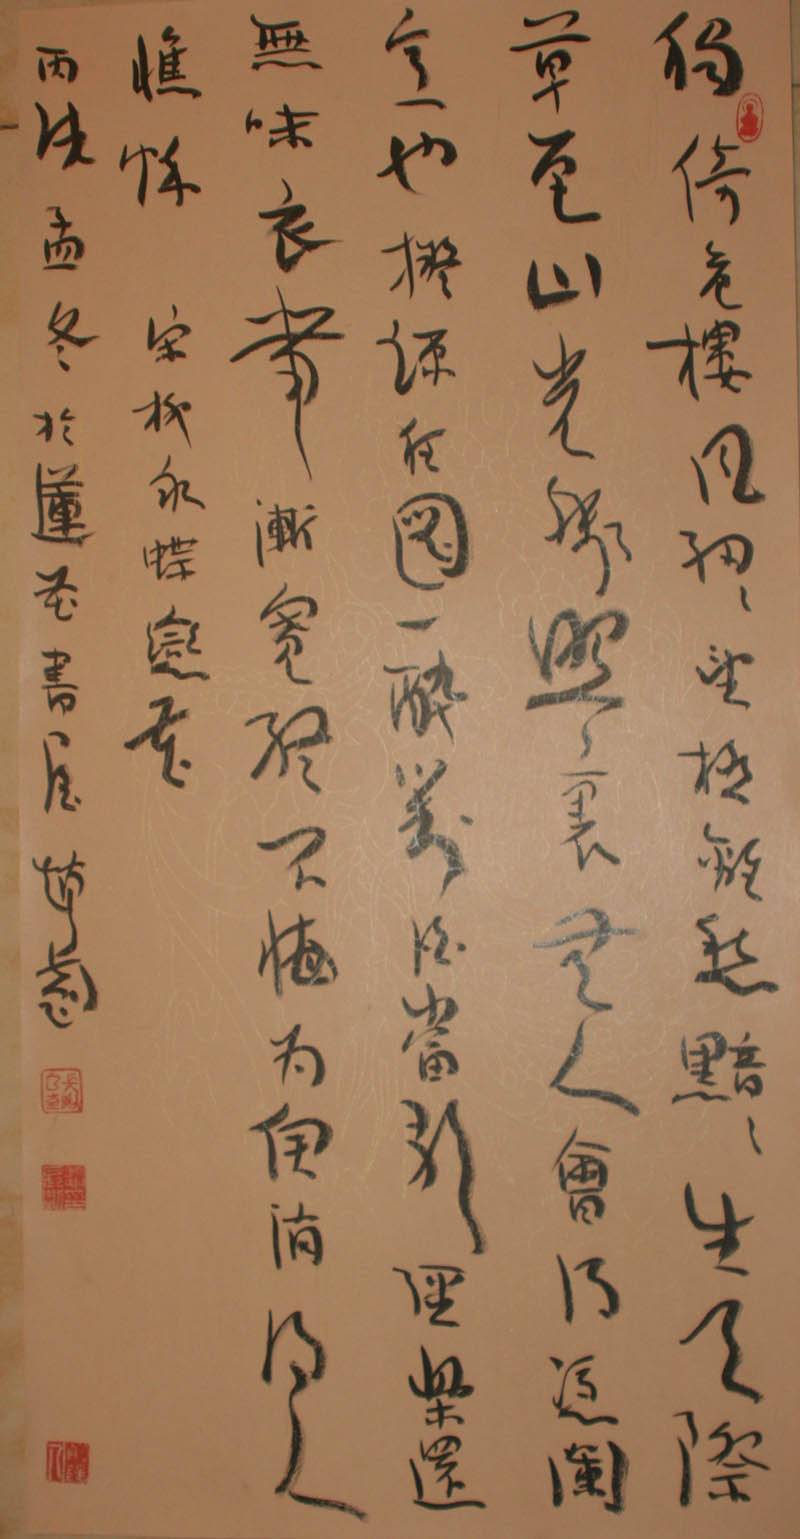 獨倚危樓風細々望極離愁黯々生天際
草色山光殘照裏無人會得憑闌
意也擬疎狂圖一醉對酒當歌強樂還
無味衣帶漸寬終不悔為伊消得人
憔悴 宋柳永蝶戀花
丙戌孟冬於蓮花書屋趙